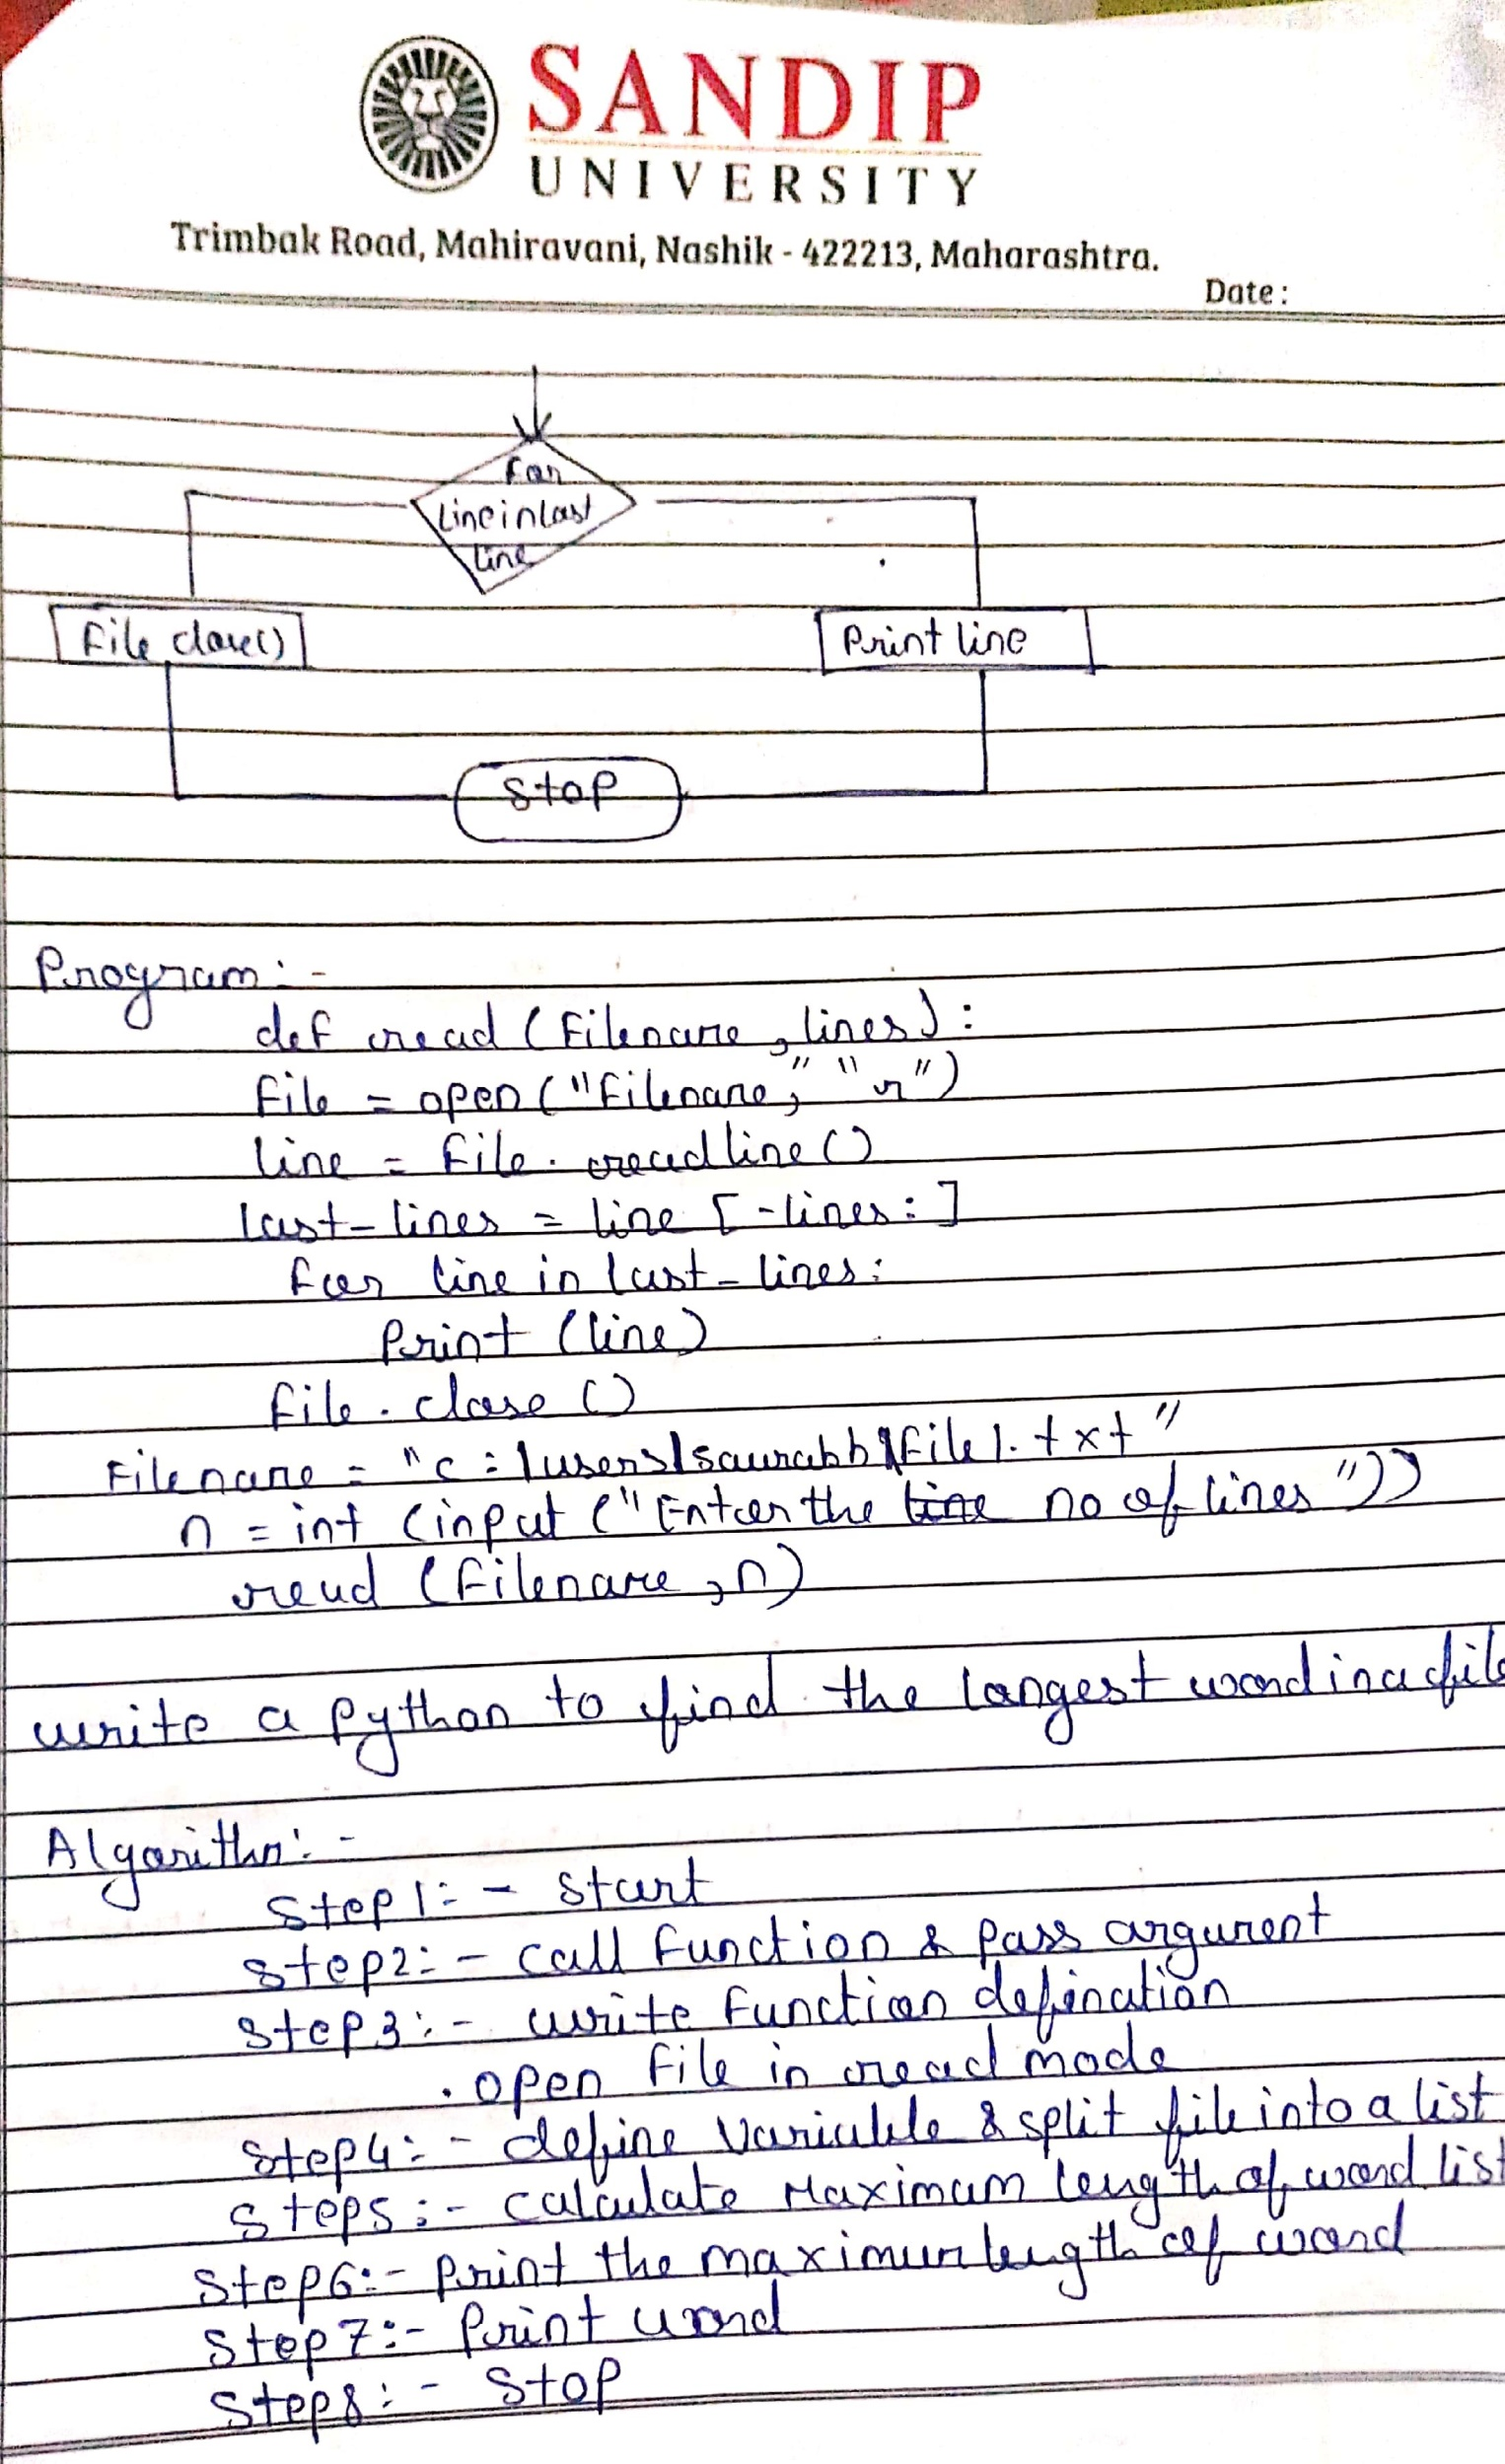 SANDIP
UNIVERSITY
Trimbak Road, Mahiravani, Nashik - 422213, Maharashtra.
Date :
For
Line in last
line
File close()
Print line
Stop
Program :-
def read (Filename, lines) :
file = open ("Filename," "r")
line = file. readline ()
last_lines = line [-lines:]
for line in last_lines:
Print (line)
file. close ()
Filename = "c:\users\saurabh\file1.txt"
n = int (input ("Enter the line no of lines"))
read (Filename, n)
write a python to find the longest word in a file
Algorithm :-
Step 1:- Start
Step2:- call function & pass argument
Step3:- write function defination
. open file in read mode
Step4:- define Variable & split file into a list
Step5:- calculate Maximum length of word list
Step6:- print the maximum length of word
Step7:- Print word
Step8:- Stop